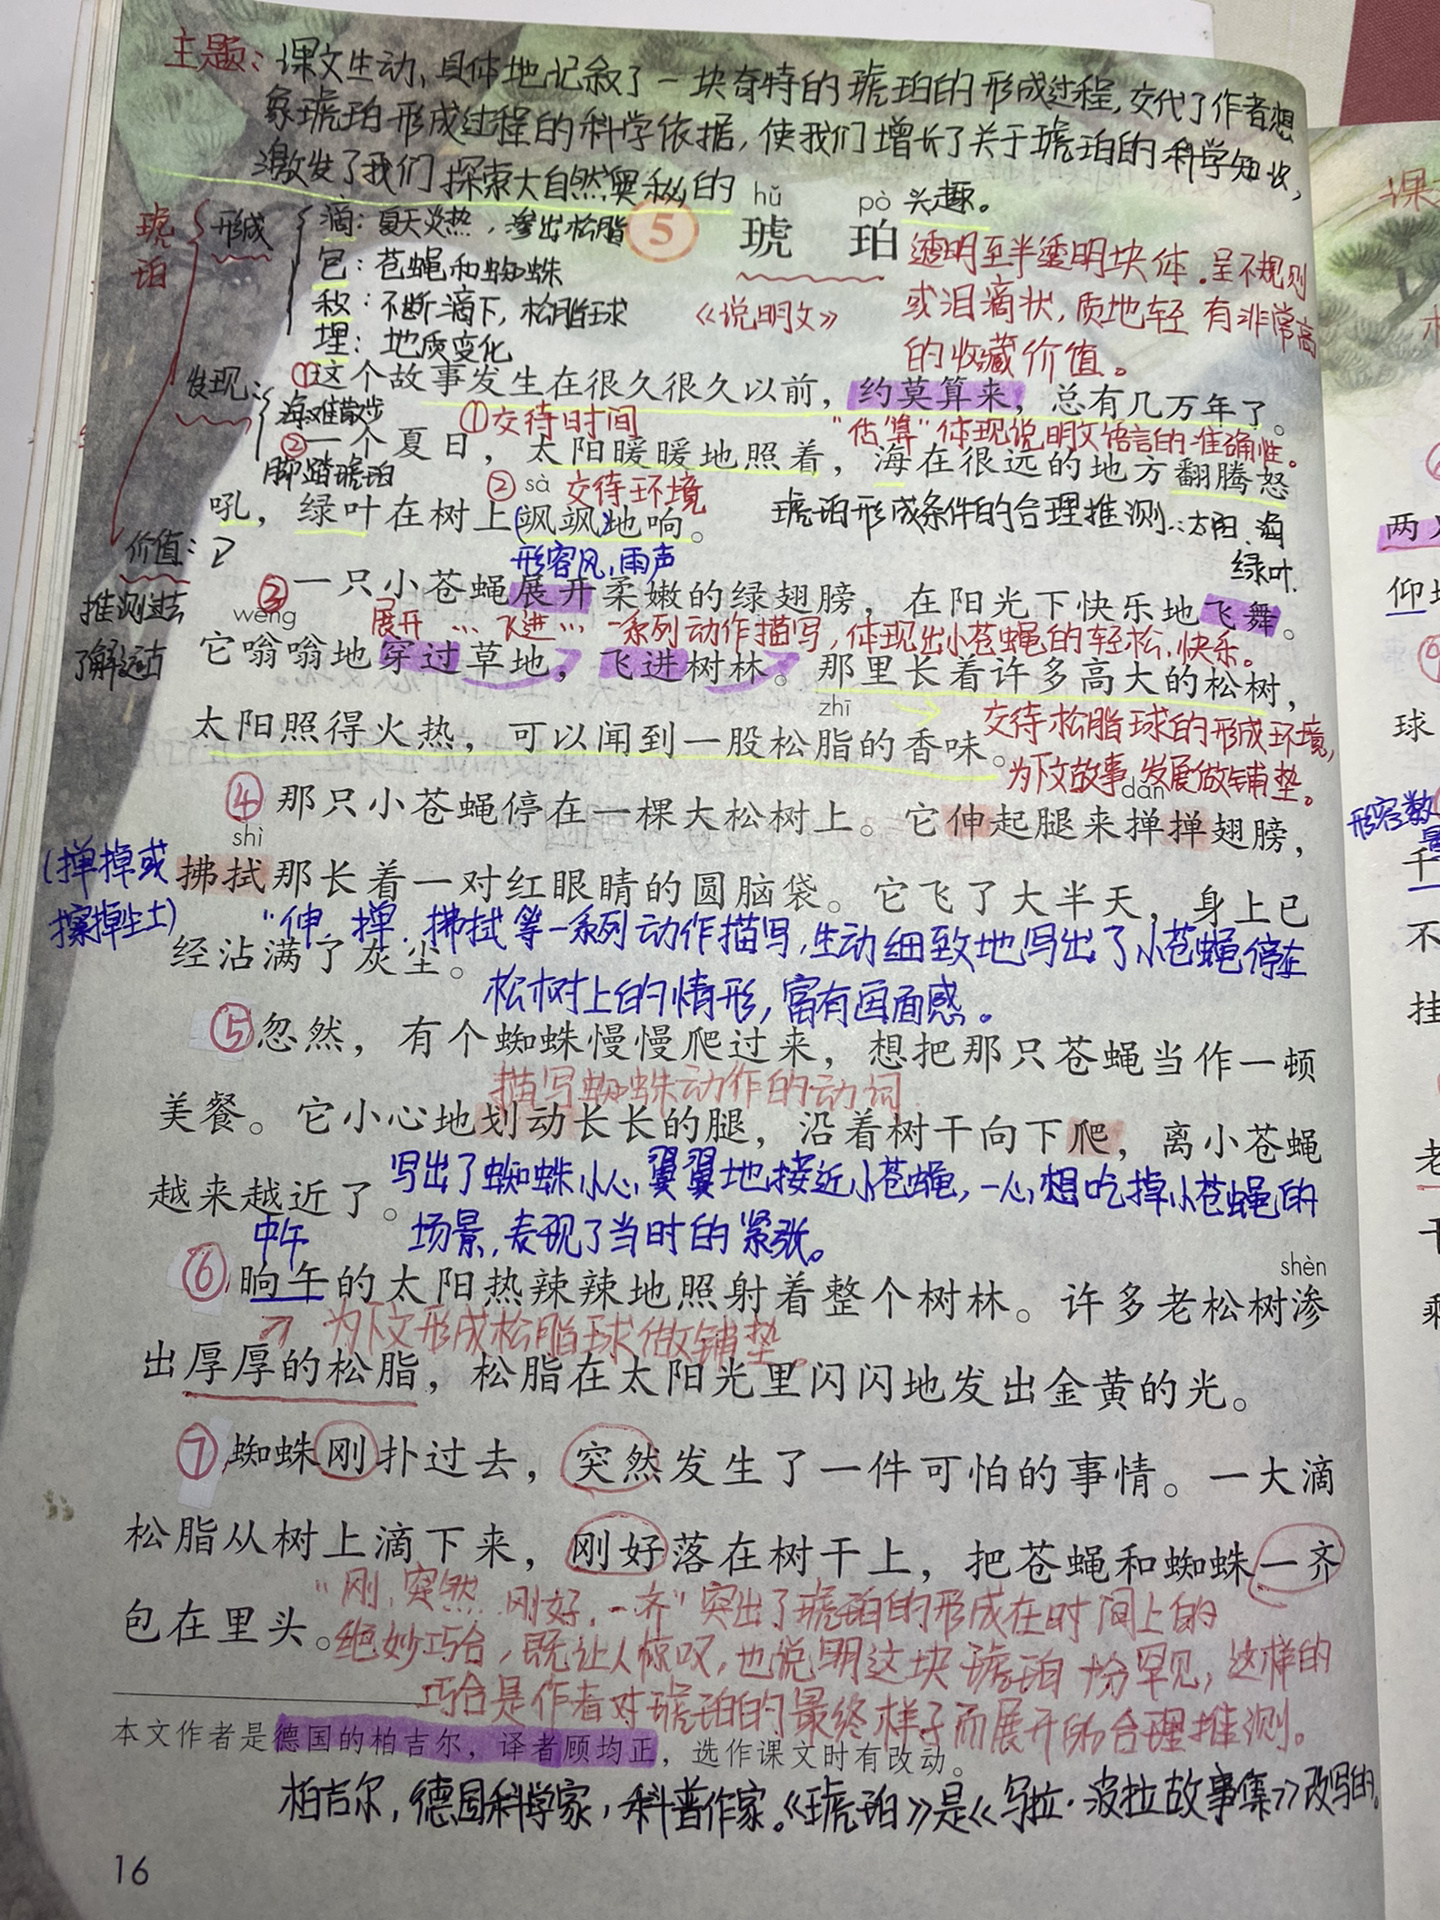 主题：课文生动、具体地记叙了一块奇特的琥珀的形成过程，交代了作者想
象琥珀形成过程的科学依据，使我们增长了关于琥珀的科学知识，
激发了我们探索大自然奥秘的
兴趣。
hǔ pò
⑤ 琥 珀
琥珀
形成
滴：夏天炎热，渗出松脂
包：苍蝇和蜘蛛
积：不断滴下，松脂球
埋：地质变化
《说明文》
透明至半透明块体．呈不规则
或泪滴状，质地轻 有非常高
的收藏价值。
发现：
海滩散步
脚踏琥珀
①这个故事发生在很久很久以前，约莫算来，总有几万年了。
①交待时间
“估算”体现说明文语言的准确性。
②一个夏日，太阳暖暖地照着，海在很远的地方翻腾怒
②交待环境
sà
吼，绿叶在树上飒飒地响。
琥珀形成条件的合理推测：太阳、海
绿叶.
形容风，雨声
价值：
推测过去
了解远古
③一只小苍蝇展开柔嫩的绿翅膀，在阳光下快乐地飞舞。
wēng
展开…飞进…一系列动作描写，体现出小苍蝇的轻松，快乐。
它嗡嗡地穿过草地，飞进树林。那里长着许多高大的松树，
zhī
太阳照得火热，可以闻到一股松脂的香味。
交待松脂球的形成环境，
为下文故事发展做铺垫。
dǎn
④那只小苍蝇停在一棵大松树上。它伸起腿来掸掸翅膀，
shì
(掸掉或
擦掉尘土)
拂拭那长着一对红眼睛的圆脑袋。它飞了大半天，身上已
经沾满了灰尘。
“伸、掸、拂拭等一系列动作描写，生动细致地写出了小苍蝇停在
松树上的情形，富有画面感。
⑤忽然，有个蜘蛛慢慢爬过来，想把那只苍蝇当作一顿
描写蜘蛛动作的动词
美餐。它小心地划动长长的腿，沿着树干向下爬，离小苍蝇
越来越近了。
写出了蜘蛛小心翼翼地接近小苍蝇，一心想吃掉小苍蝇的
场景，表现了当时的紧张。
中午
shèn
⑥晌午的太阳热辣辣地照射着整个树林。许多老松树渗
为下文形成松脂球做铺垫。
出厚厚的松脂，松脂在太阳光里闪闪地发出金黄的光。
⑦蜘蛛刚扑过去，突然发生了一件可怕的事情。一大滴
松脂从树上滴下来，刚好落在树干上，把苍蝇和蜘蛛一齐
包在里头。
“刚、突然、刚好，一齐”突出了琥珀的形成在时间上的
绝妙巧合，既让人惊叹，也说明这块琥珀十分罕见，这样的
巧合是作者对琥珀的最终样子而展开的合理推测。
本文作者是德国的柏吉尔，译者顾均正，选作课文时有改动。
柏吉尔，德国科学家，科普作家。《琥珀》是《乌拉·波拉故事集》改写的。
16
两
仰
球
形容数量
千
不
挂
老